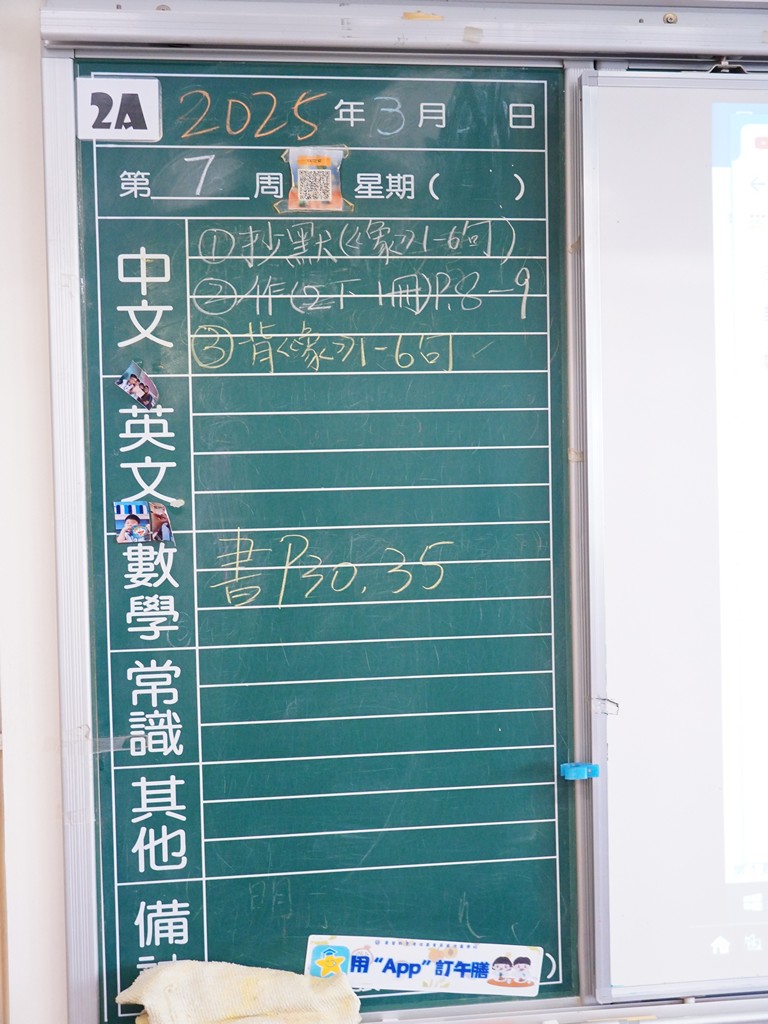 2A 2025年3月 日
第7周 星期( )
中文
①抄默(《象》1-6句)
②作(2下1冊)P.8-9
③背《象》1-6句
英文
數學
書P30.35
常識
其他
備
明
用“App”訂午膳